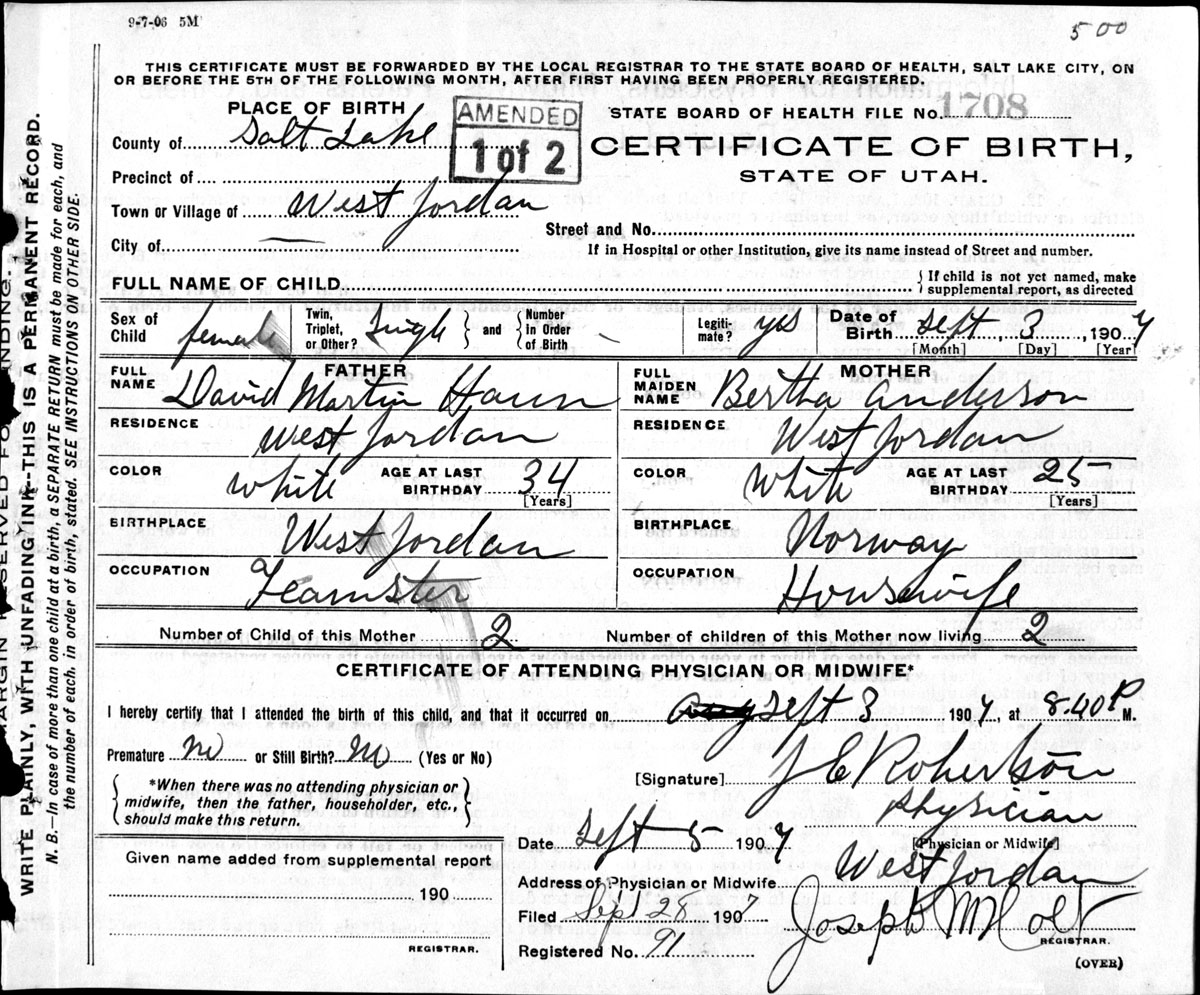 9-7-06 5M
5 00
THIS CERTIFICATE MUST BE FORWARDED BY THE LOCAL REGISTRAR TO THE STATE BOARD OF HEALTH, SALT LAKE CITY, ON
OR BEFORE THE 5TH OF THE FOLLOWING MONTH, AFTER FIRST HAVING BEEN PROPERLY REGISTERED.
PLACE OF BIRTH
AMENDED
1 of 2
STATE BOARD OF HEALTH FILE No. 1708
CERTIFICATE OF BIRTH,
STATE OF UTAH.
County of Salt Lake
Precinct of
Town or Village of West Jordan
Street and No.
City of —
If in Hospital or other Institution, give its name instead of Street and number.
FULL NAME OF CHILD
{ If child is not yet named, make
supplemental report, as directed
Sex of Child female
Twin, Triplet, or Other? Single } and { Number in Order of Birth
Legitimate? yes
Date of Birth Sept 3, 1907
[Month] [Day] [Year]
FATHER
FULL NAME David Martin Haun
RESIDENCE West Jordan
COLOR White AGE AT LAST BIRTHDAY 34
[Years]
BIRTHPLACE West Jordan
OCCUPATION Teamster
MOTHER
FULL MAIDEN NAME Bertha Anderson
RESIDENCE West Jordan
COLOR White AGE AT LAST BIRTHDAY 25
[Years]
BIRTHPLACE Norway
OCCUPATION Housewife
Number of Child of this Mother 2 Number of children of this Mother now living 2
CERTIFICATE OF ATTENDING PHYSICIAN OR MIDWIFE*
I hereby certify that I attended the birth of this child, and that it occurred on Sept 3 1907, at 8.40 P M.
Premature no or Still Birth? no (Yes or No)
[Signature] J E Robertson
Physician
[Physician or Midwife]
{ *When there was no attending physician or
midwife, then the father, householder, etc.,
should make this return. }
Date Sept 5 1907
Address of Physician or Midwife West Jordan
Given name added from supplemental report
190
REGISTRAR.
Filed Sept 28 1907
Joseph M Holt
REGISTRAR.
Registered No. 91
(OVER)
MARGIN RESERVED FOR BINDING.
WRITE PLAINLY, WITH UNFADING INK--THIS IS A PERMANENT RECORD.
N. B.—In case of more than one child at a birth, a SEPARATE RETURN must be made for each, and
the number of each, in order of birth, stated. SEE INSTRUCTIONS ON OTHER SIDE.